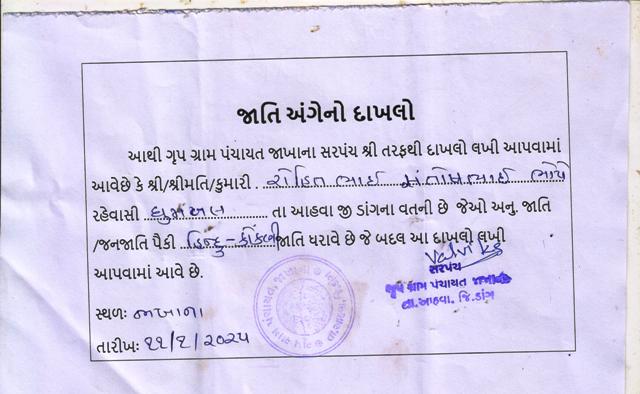 જાતિ અંગેનો દાખલો
આથી ગૃપ ગ્રામ પંચાયત જાખાના સરપંચ શ્રી તરફથી દાખલો લખી આપવામાં
આવેછે કે શ્રી/શ્રીમતિ/કુમારી રોહિતભાઈ સંતોષભાઈ ભોયે
રહેવાસી ધુમખલ તા આહવા જી ડાંગના વતની છે જેઓ અનુ. જાતિ
/જનજાતિ પૈકી હિન્દુ-કોંકણી જાતિ ધરાવે છે જે બદલ આ દાખલો લખી
આપવામાં આવે છે.
Valvi KS
સરપંચ
ગૃપ ગ્રામ પંચાયત જાખાના
તા.આહવા. જિ.ડાંગ
સ્થળઃ જાખાના
તારીખઃ ११/१/२०२५